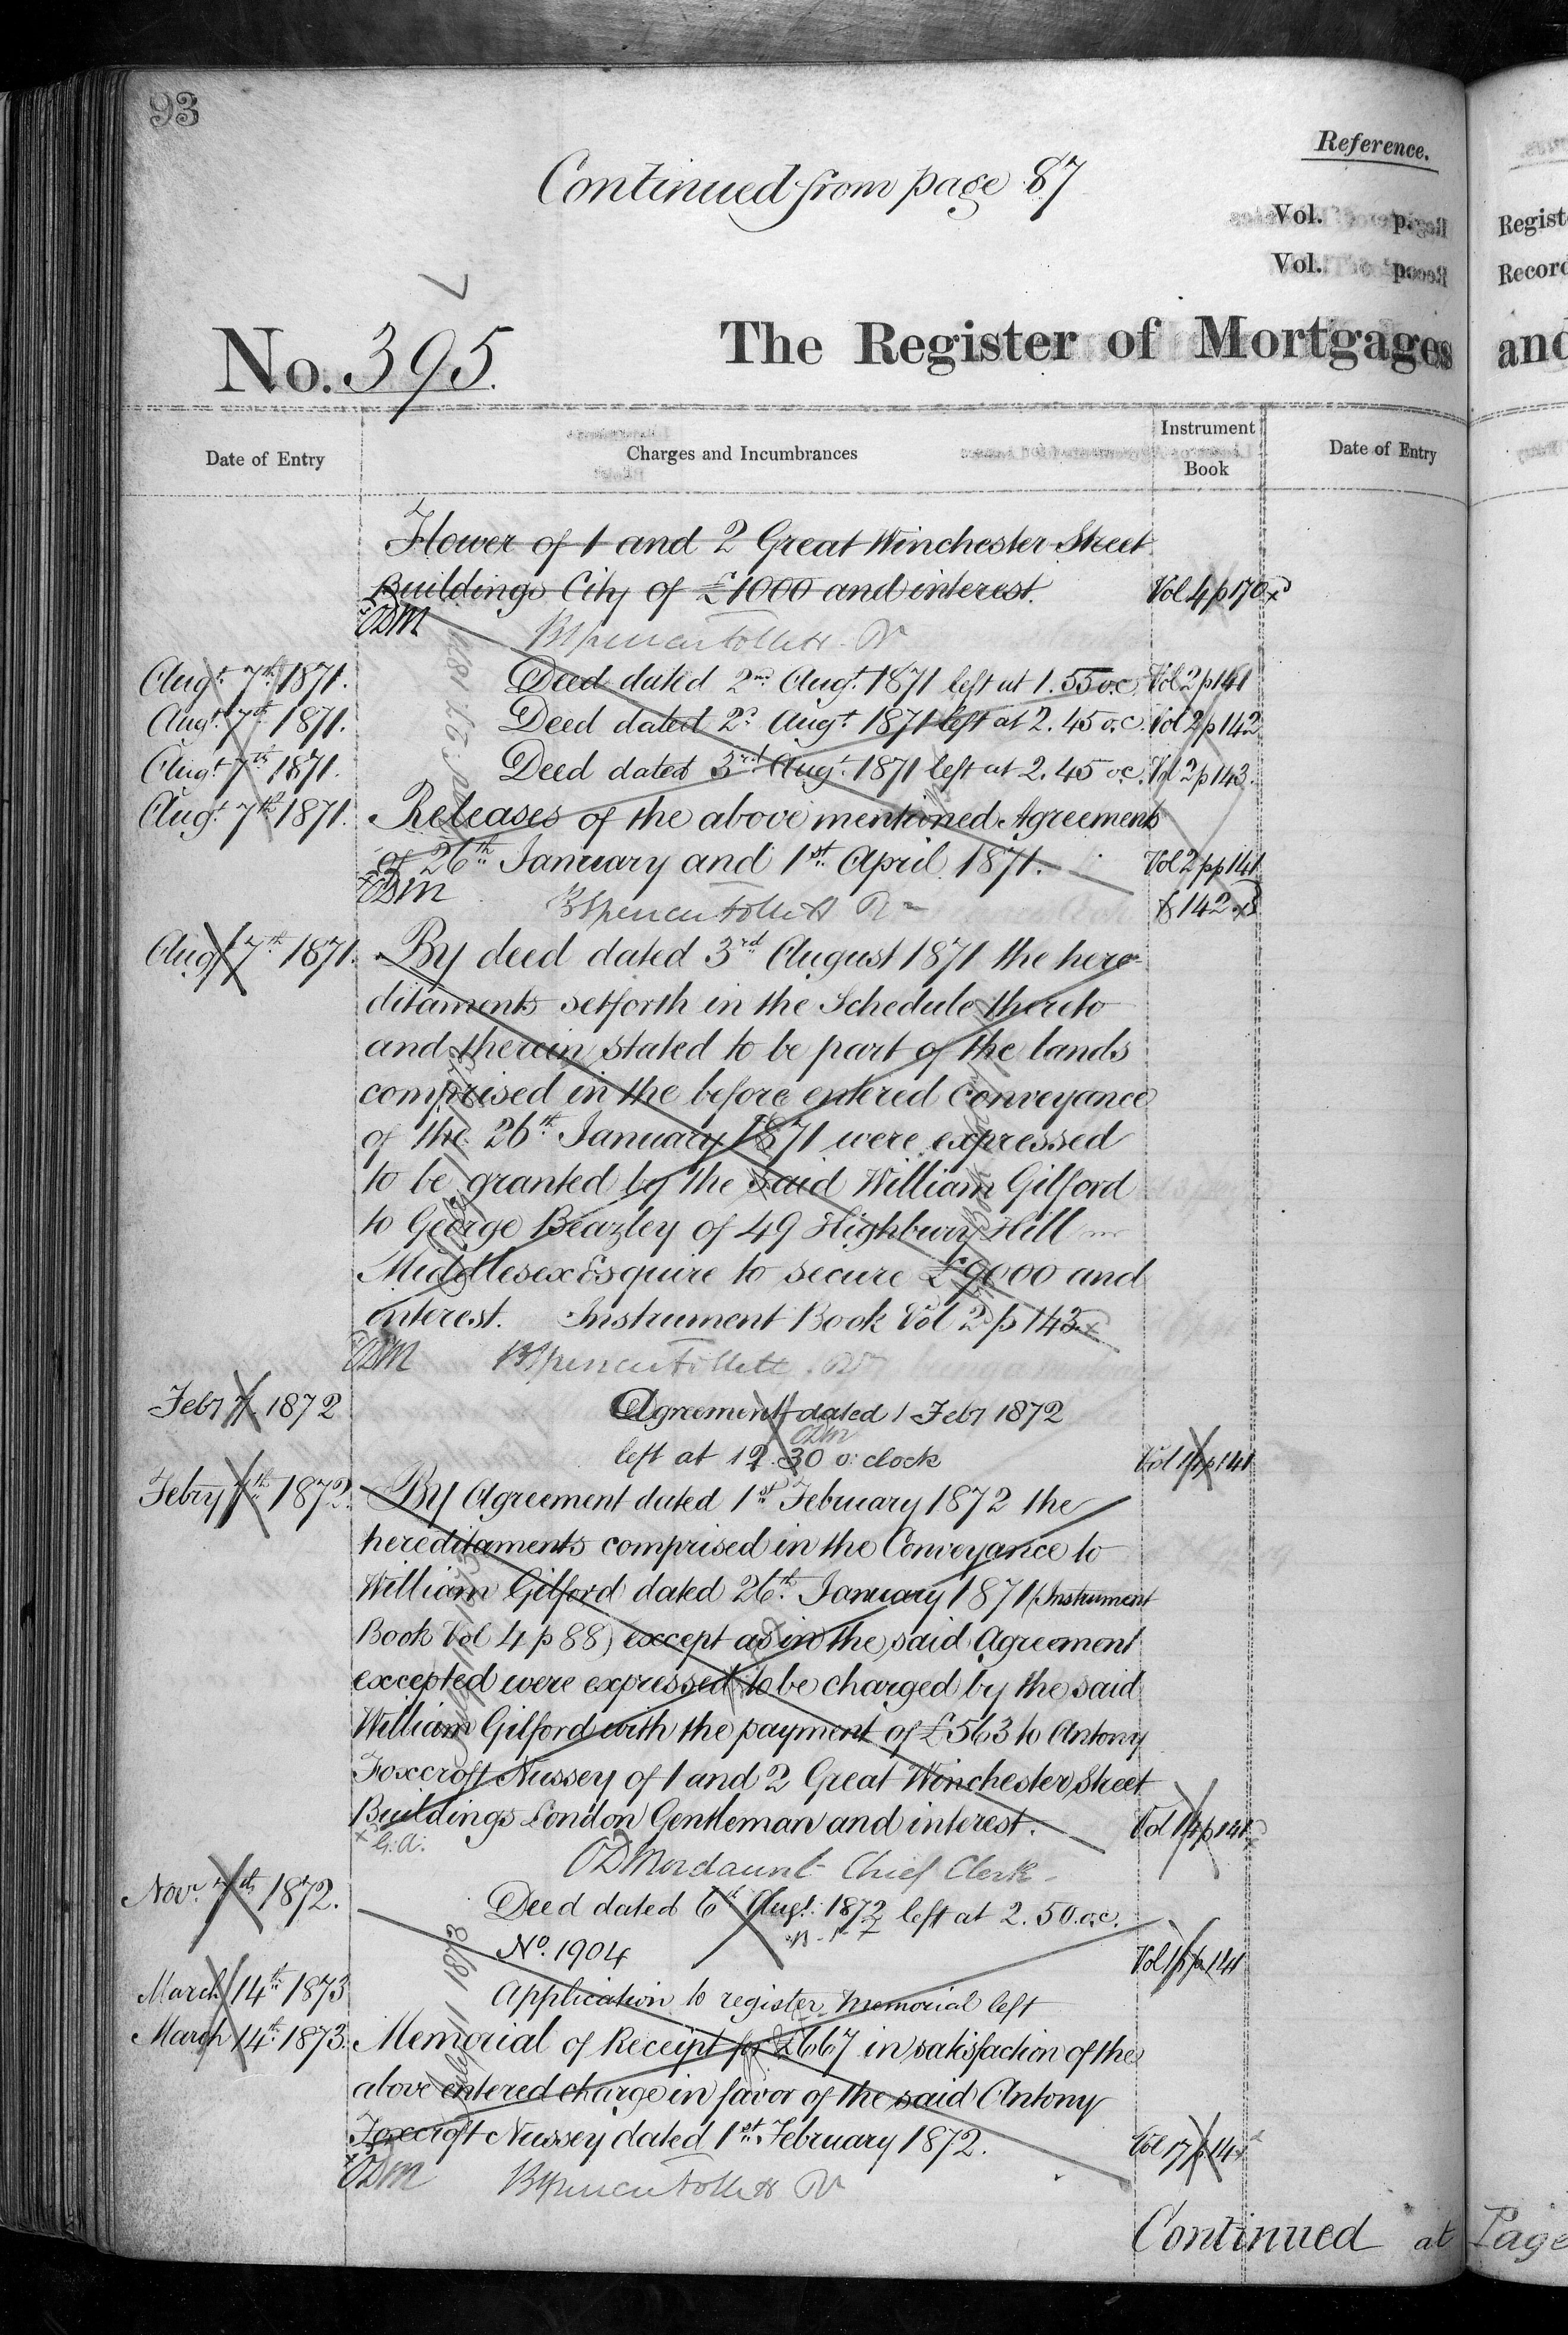 93
Reference.
Continued from page 87
Vol. p.
Vol. p.
Regist
Record
7
No. 395.
The Register of Mortgages
and
Date of Entry
Charges and Incumbrances
Instrument Book
Date of Entry
Flower of 1 and 2 Great Winchester Street
Buildings City of £1000 and interest. Vol 4 p 170
ODM BSpencer Follett R
Augt. 7th. 1871. Deed dated 2nd Augt. 1871 left at 1.55 o.c. Vol 2 p 141
Augt. 7th. 1871. Deed dated 2d Augt 1871 left at 2.45 o.c. Vol 2 p 142
Augt 7th 1871. Deed dated 3rd Augt. 1871 left at 2.45 o.c. Vol 2 p 143.
Augt. 7th 1871. Releases of the above mentioned Agreements
of 26th January and 1st April 1871. Vol 2 pp 141
& 142
ODM BSpencer Follett R
Augt 7th 1871. By deed dated 3rd August 1871 the here-
ditaments set forth in the Schedule thereto
and therein stated to be part of the lands
comprised in the before entered conveyance
of the 26th January 1871 were expressed
to be granted by the said William Gilford
to George Beazley of 49 Highbury Hill
Middlesex Esquire to secure £9000 and
interest. Instrument Book Vol 2 p 143
ODM BSpencer Follett R
Feby 7 1872 Agreement dated 1 Feby 1872
ODM
left at 12.30 o'clock Vol 14 p 141
Febry 7th 1872. By Agreement dated 1st February 1872 the
hereditaments comprised in the Conveyance to
William Gilford dated 26th January 1871 (Instrument
Book Vol 4 p 88) except as in the said Agreement
excepted were expressed to be charged by the said
William Gilford with the payment of £563 to Antony
Foxcroft Nussey of 1 and 2 Great Winchester Street
Buildings London Gentleman and interest. Vol 14 p 141
G.A.
ODMordaunt Chief Clerk
Novr. 7th 1872. Deed dated 6th Augt. 1872 left at 2.50 o.c.
No. 1904 Vol 15 p 141
March 14th 1873 Application to register Memorial left
March 14th. 1873. Memorial of Receipt for £667 in satisfaction of the
above entered charge in favor of the said Antony
Foxcroft Nussey dated 1st February 1872. Vol 17 p 14
ODM BSpencer Follett R
Continued at Page